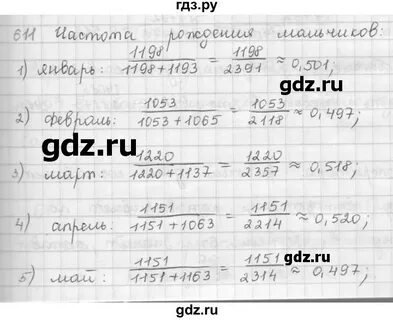 гдз.ру
611 Частота рождения мальчиков:
1) январь: 1198/(1198+1193) = 1198/2391 ≈ 0,501;
gdz.ru
2) февраль: 1053/(1053+1065) = 1053/2118 ≈ 0,497;
gdz.ru
3) март: 1220/(1220+1137) = 1220/2357 ≈ 0,518;
gdz.ru
4) апрель: 1151/(1151+1063) = 1151/2214 ≈ 0,520;
gdz.ru
5) май: 1151/(1151+1163) = 1151/2314 ≈ 0,497;
gdz.ru